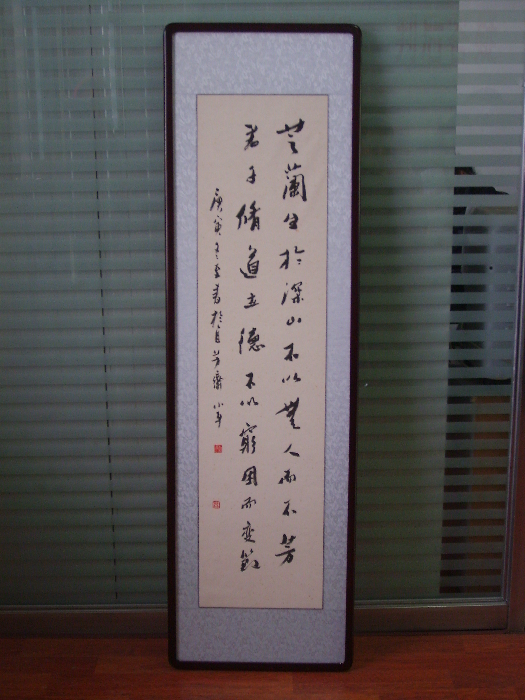 芝蘭生於深山不以無人而不芳
君子脩道立德不以窮困而变節
庚寅冬書於自芳齋 小平